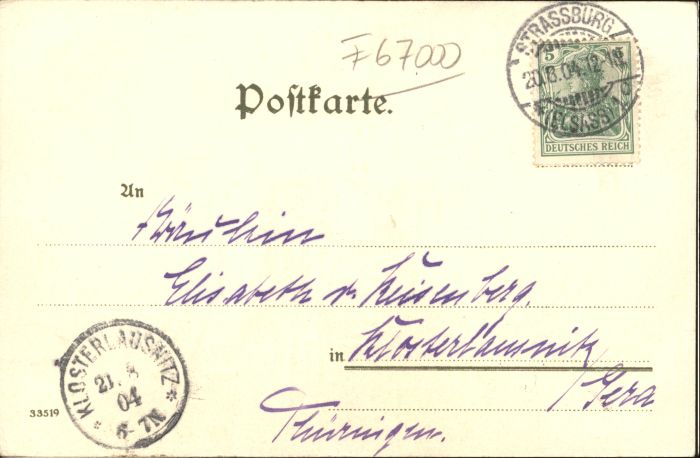 F67000
STRASSBURG
20.8.04.12-1
(ELSASS)
5
DEUTSCHES REICH
Postkarte.
An
Fräulein
Elisabeth v.
in Klosterlausnitz/
Gera
Thüringen.
* KLOSTERLAUSNITZ *
21. 8
04
6-7N
33519